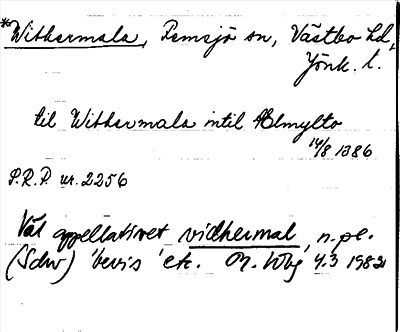 *Withermala, Remsjö sn, Västbo hd,
Jönk. l.
til Withermala intil Ælmylto
14/8 1386
P.R.P. nr. 2256
Väl appellativet vidhermal, n. pl.
(Sdw) 'bevis' etc. 4.3 1982